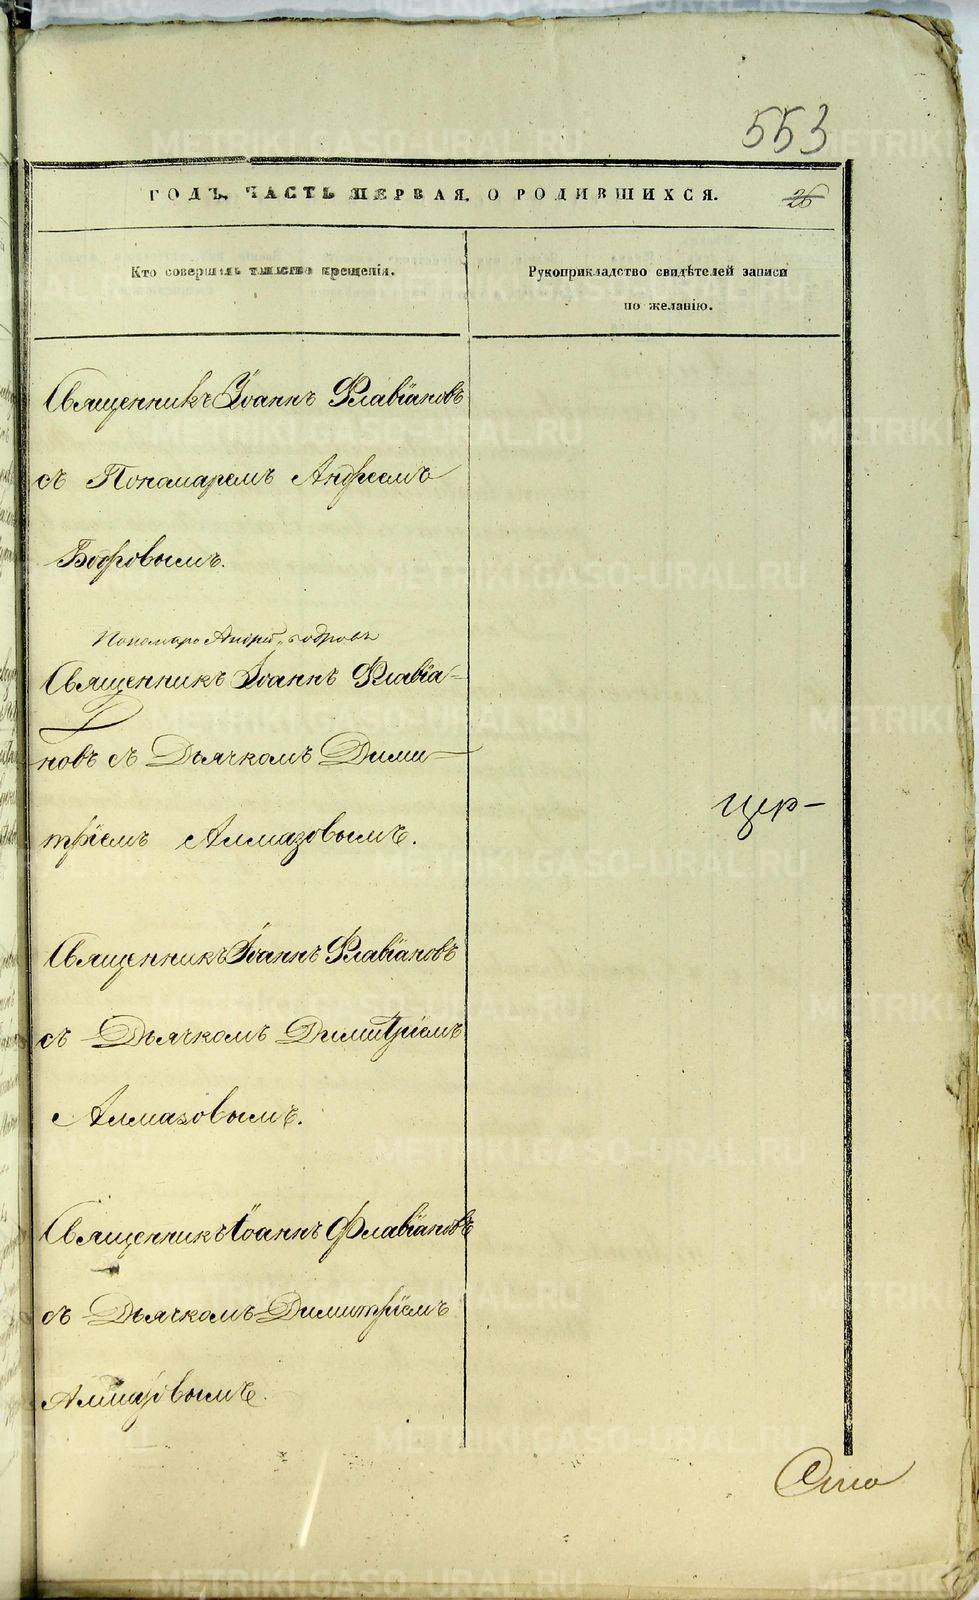 553
ГОДЪ, ЧАСТЬ ПЕРВАЯ, О РОДИВШИХСЯ.
26
Кто совершалъ таинство крещенія.
Рукоприкладство свидѣтелей записи
по желанію.
Священникъ Іоаннъ Флавіановъ
съ Пономаремъ Андреемъ
Бобровымъ.
Пономарь Андрей Бобровъ
Священникъ Іоаннъ Флавіа-
новъ съ Дьячкомъ Дими-
цер-
тріемъ Алмазовымъ.
Священникъ Іоаннъ Флавіановъ
съ Дьячкомъ Димитріемъ
Алмазовымъ.
Священникъ Іоаннъ Флавіановъ
съ Дьячкомъ Димитріемъ
Алмазовымъ.
METRIKI.GASO-URAL.RU